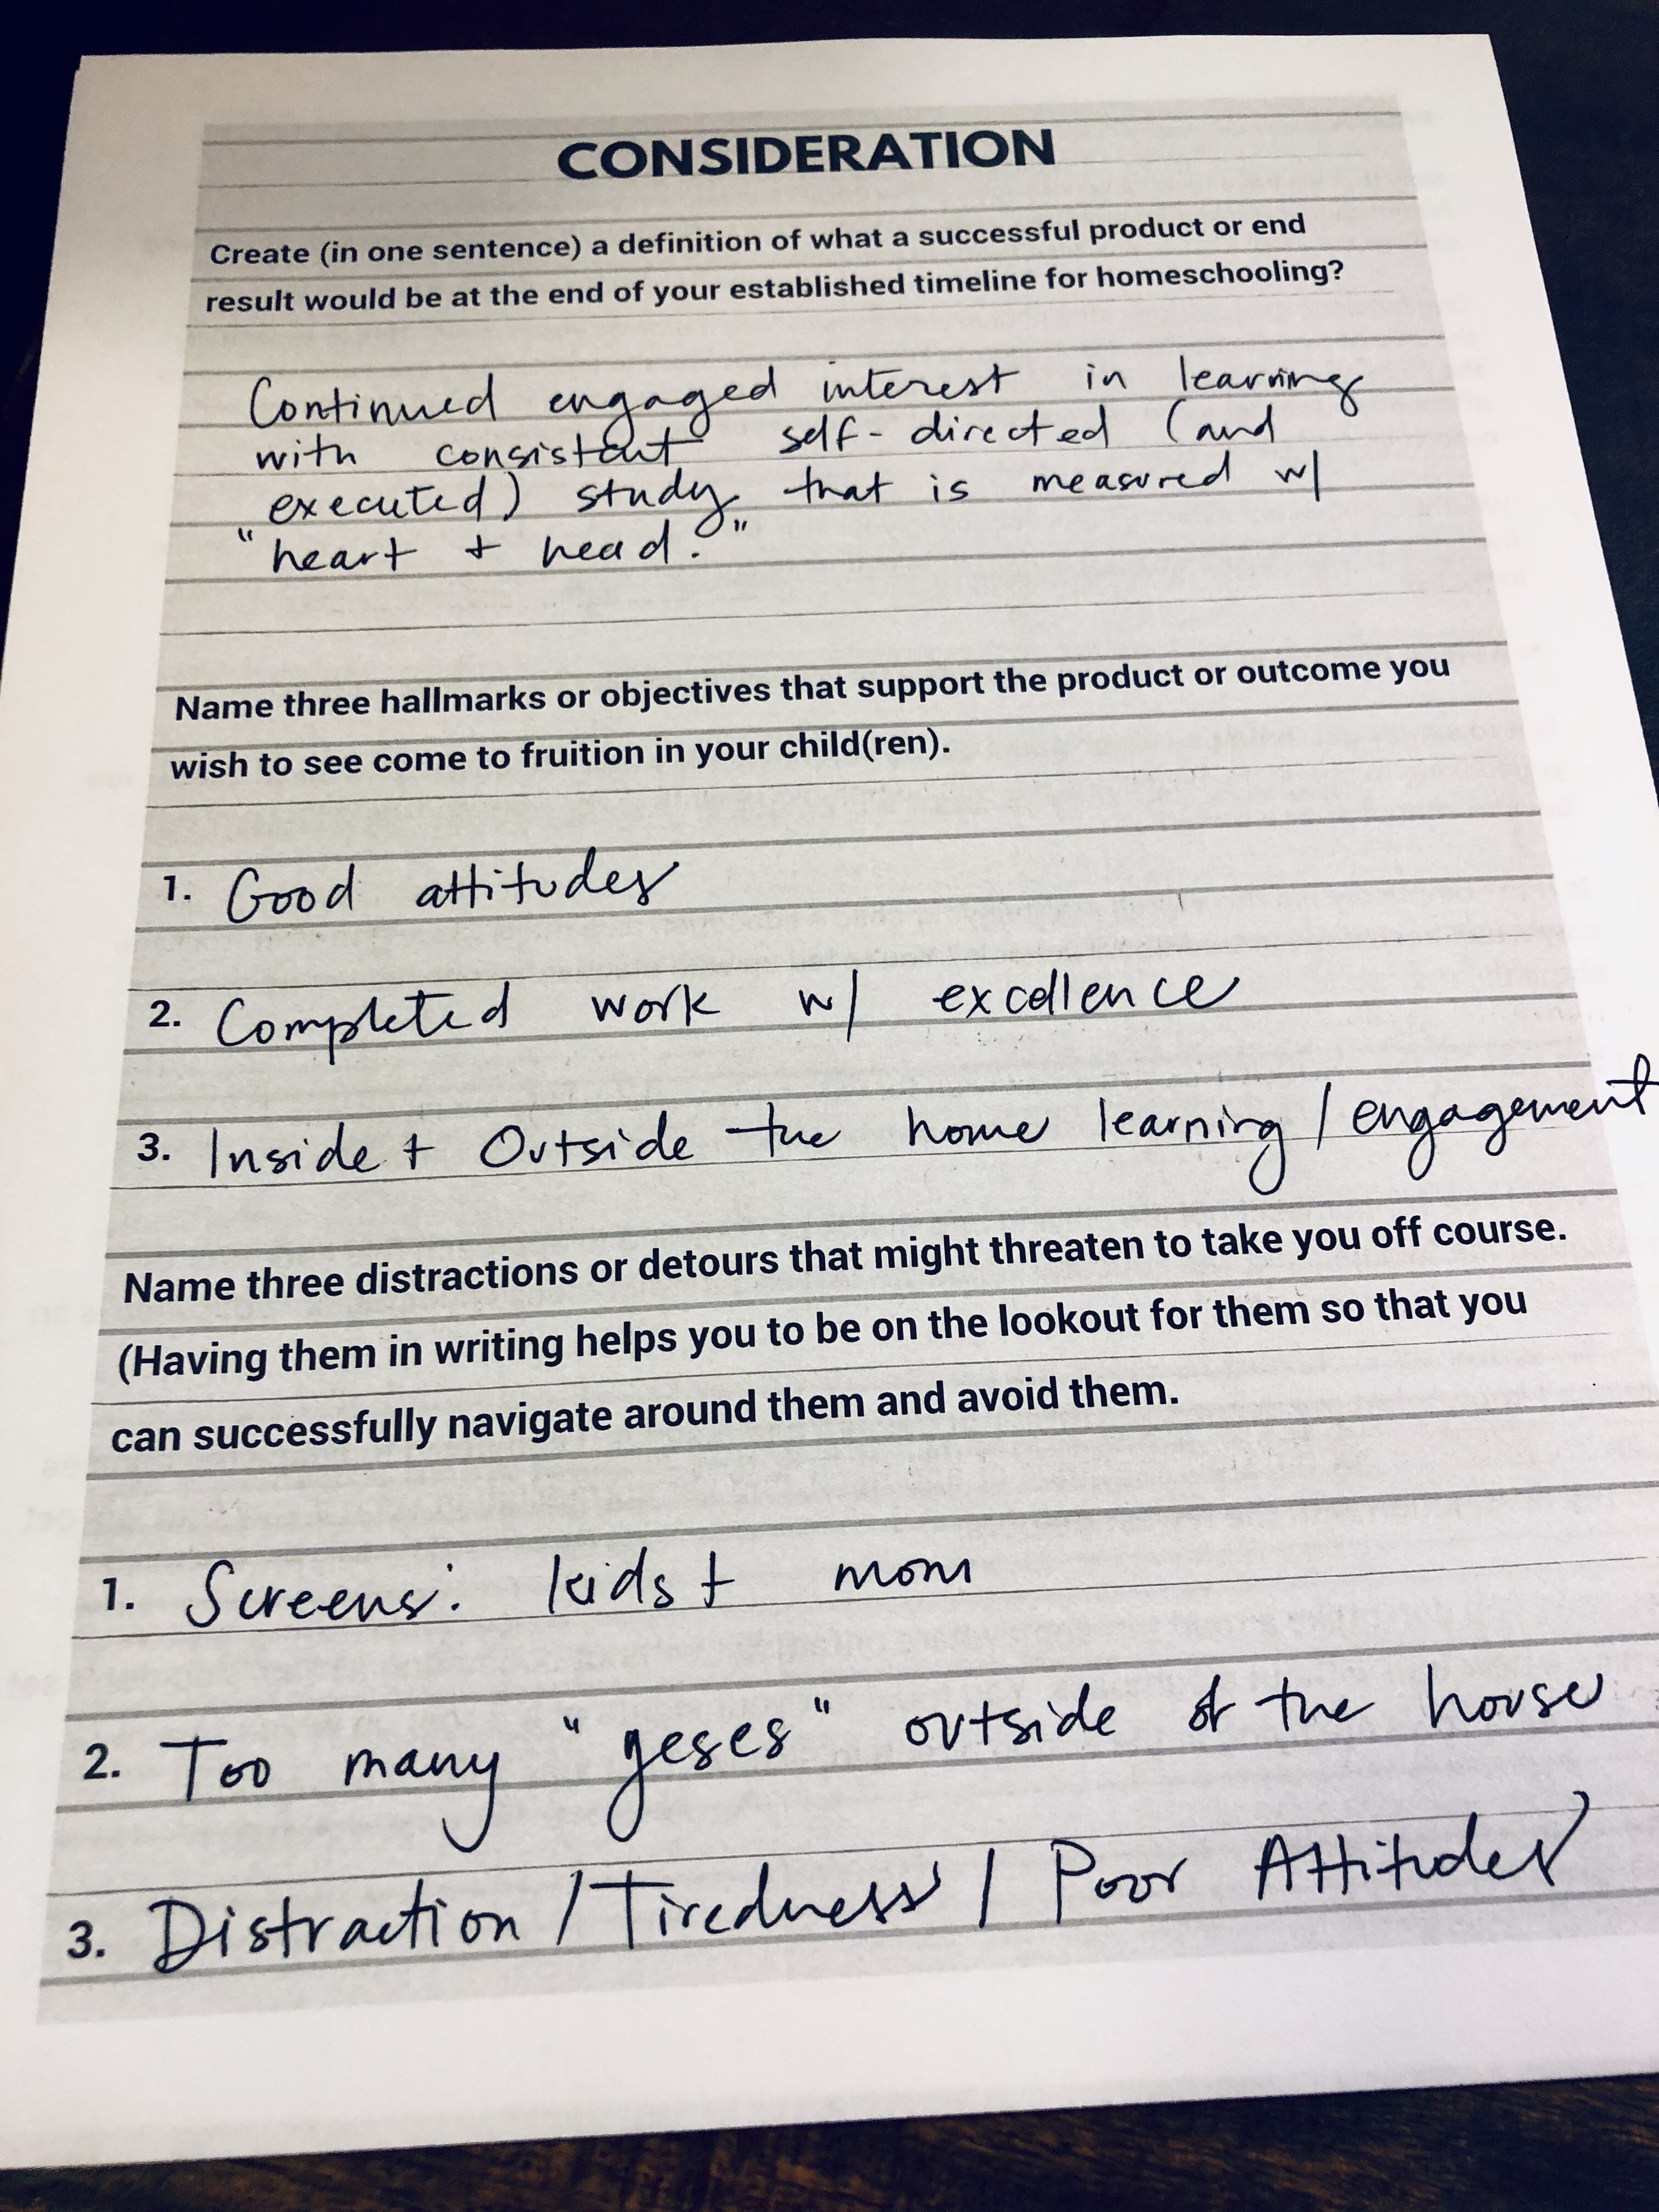 CONSIDERATION
Create (in one sentence) a definition of what a successful product or end
result would be at the end of your established timeline for homeschooling?
Continued engaged interest in learning
with consistent self-directed (and
executed) study that is measured w/
"heart + head."
Name three hallmarks or objectives that support the product or outcome you
wish to see come to fruition in your child(ren).
1. Good attitudes
2. Completed work w/ excellence
3. Inside + Outside the home learning / engagement
Name three distractions or detours that might threaten to take you off course.
(Having them in writing helps you to be on the lookout for them so that you
can successfully navigate around them and avoid them.
1. Screens: kids + mom
2. Too many "yeses" outside of the house
3. Distraction / Tiredness / Poor Attitudes